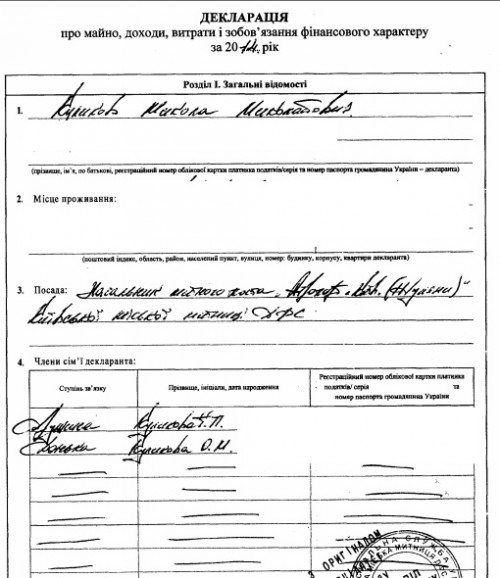 ДЕКЛАРАЦІЯ
про майно, доходи, витрати і зобов'язання фінансового характеру
за 2014 рік
Розділ I. Загальні відомості
1. Куликов Микола Михайлович
(прізвище, ім'я, по батькові, реєстраційний номер облікової картки платника податків/серія та номер паспорта громадянина України – декларанта)
2. Місце проживання:
(поштовий індекс, область, район, населений пункт, вулиця, номер: будинку, корпусу, квартири декларанта)
3. Посада: Начальник митного поста „ (Жуляни)"
Київської міської митниці ДФС
4. Члени сім'ї декларанта:
Ступінь зв'язку
Прізвище, ініціали, дата народження
Реєстраційний номер облікової картки платника податків/ серія та номер паспорта громадянина України
Дружина Куликова Н. П.
Донька Куликова О. М.
З ОРИГІНАЛОМ